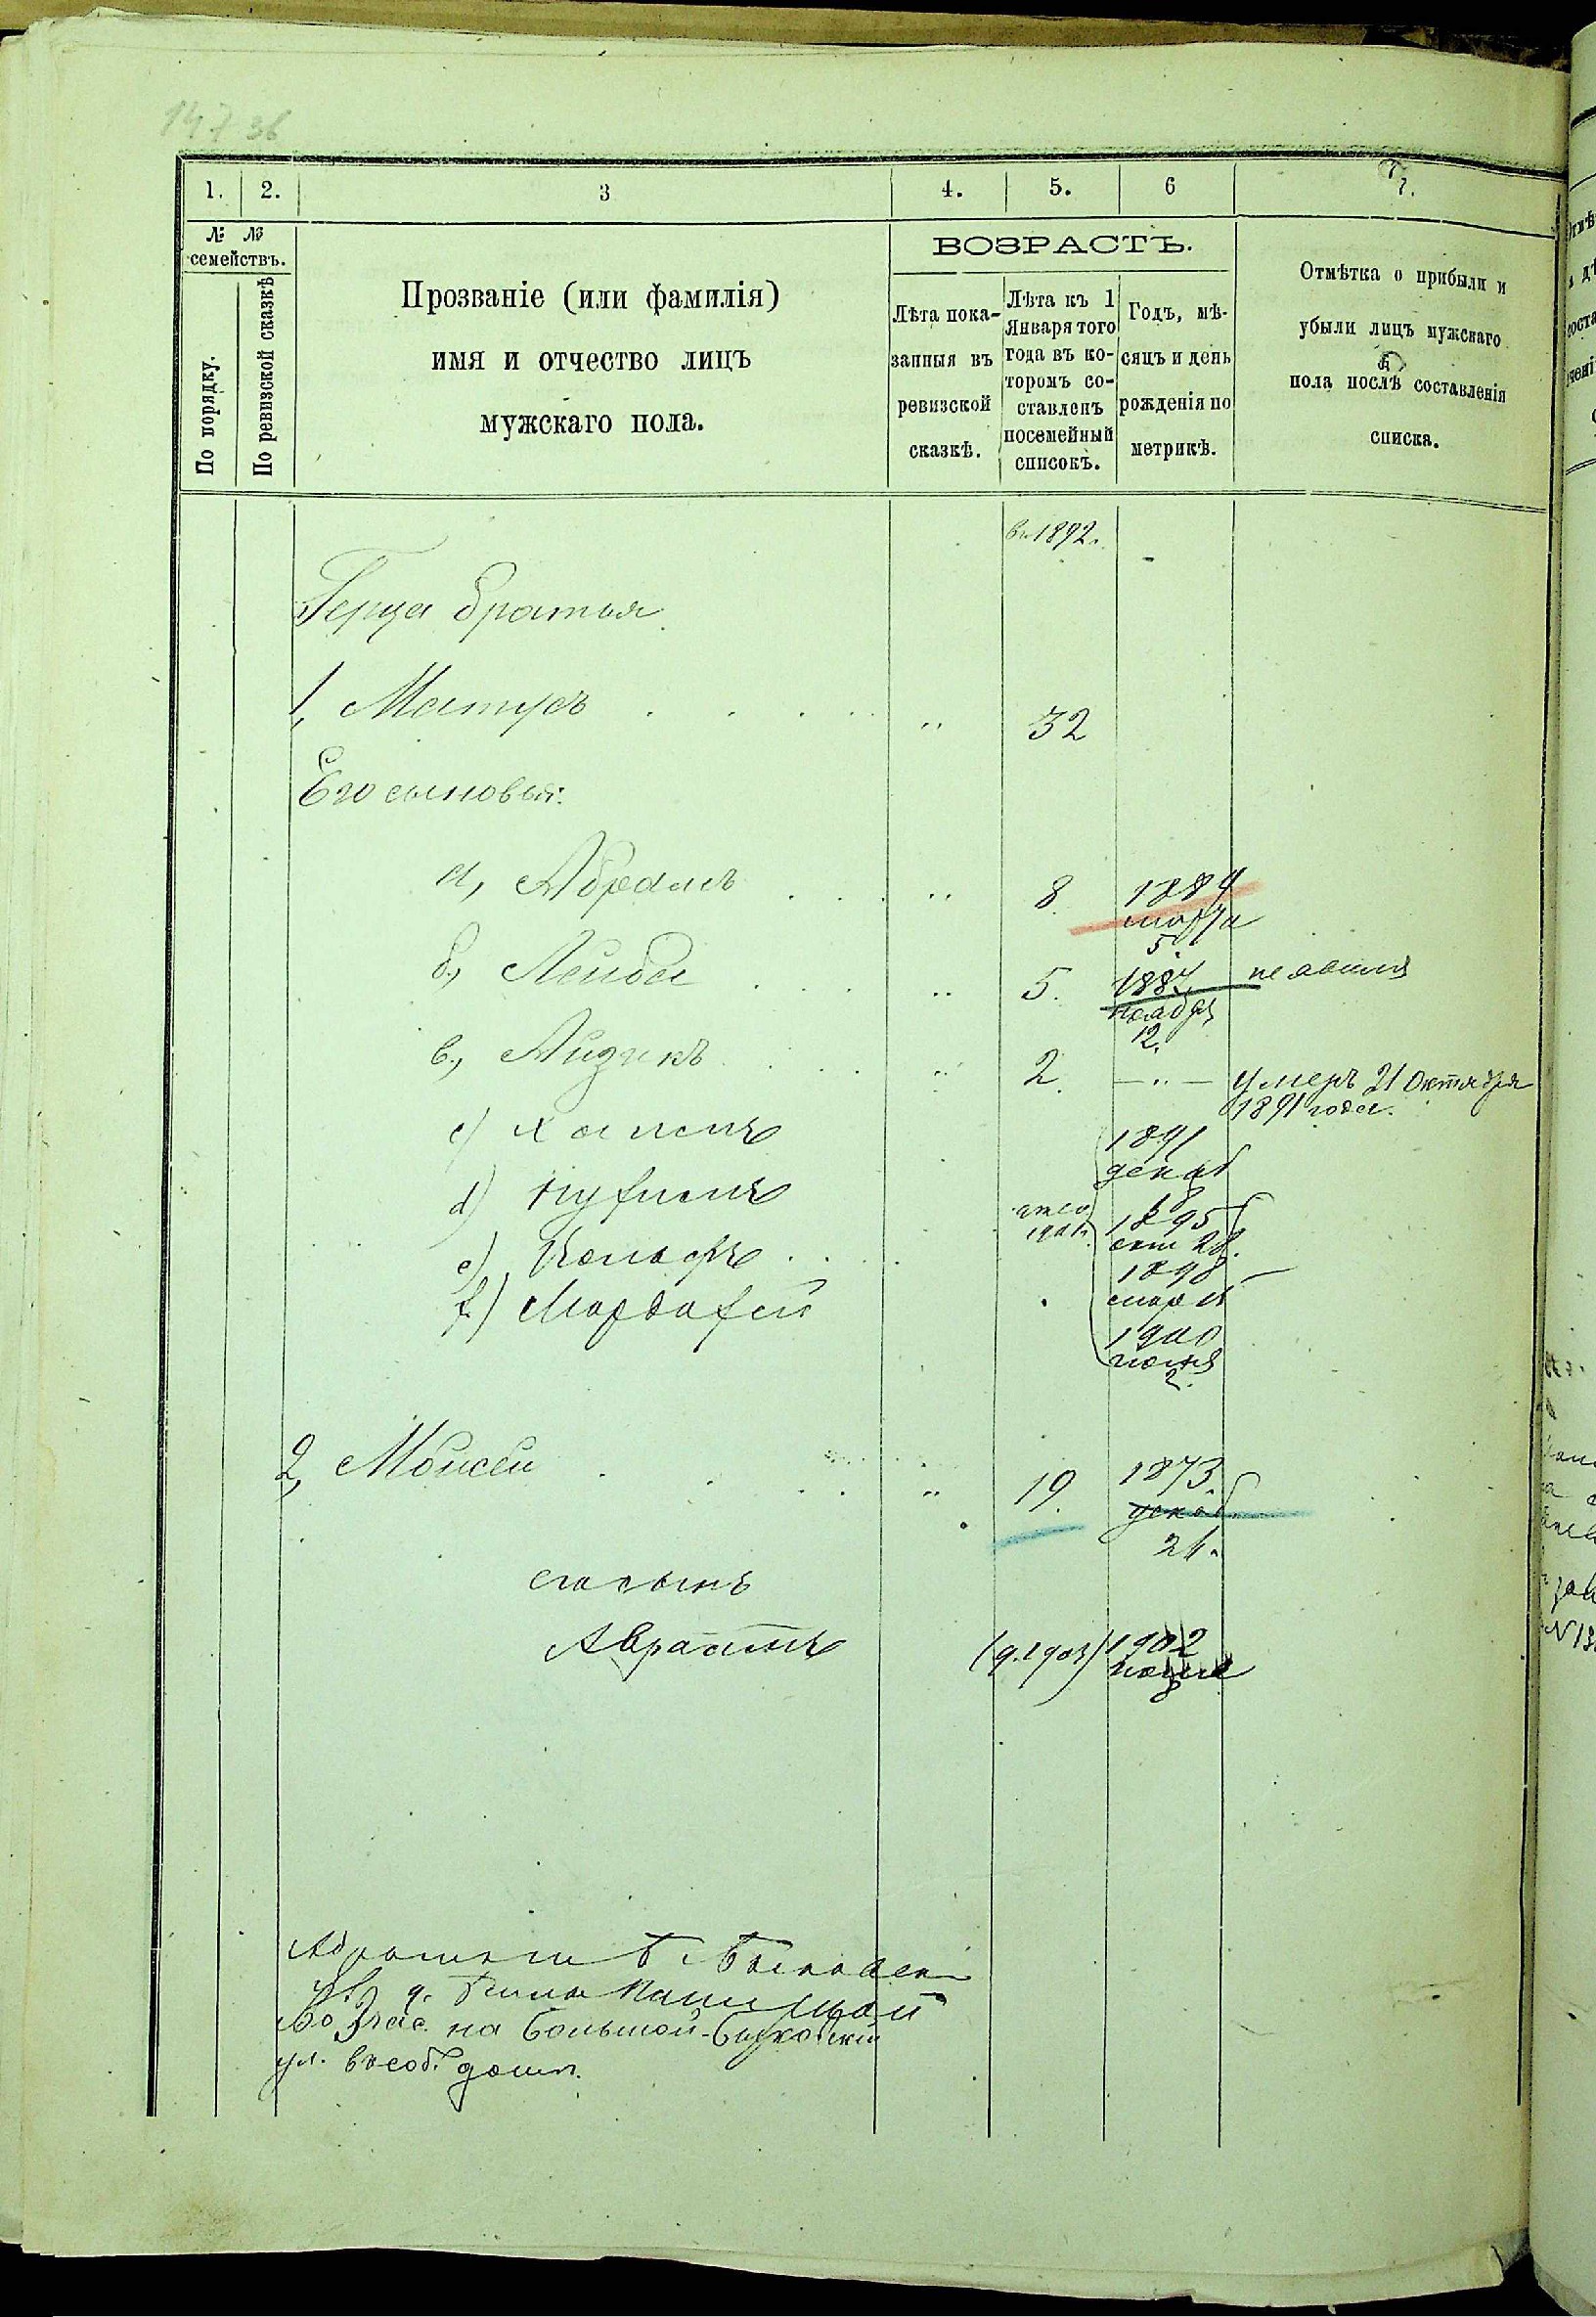 147 36
1. 2. 3 4. 5. 6 7.
№ №
семействъ.
По порядку.
По ревизской сказкѣ
Прозваніе (или фамилія)
имя и отчество лицъ
мужскаго пола.
ВОЗРАСТЪ.
Лѣта пока-
занныя въ
ревизской
сказкѣ.
Лѣта къ 1
Января того
года въ ко-
торомъ со-
ставленъ
посемейный
списокъ.
Годъ, мѣ-
сяцъ и день
рожденія по
метрикѣ.
Отмѣтка о прибыли и
убыли лицъ мужскаго
пола послѣ составленія
списка.
въ 1892.
Герца братья
1, Матусъ " 32
Его сыновья:
а, Абрамъ " 8 1884
марта
5.
б, Лейба " 5. 1887
ноября
12.
в, Айзикъ " 2. — " — умеръ 21 Октября
1891 года.
c) Хаимъ 1891
декаб
18
d) 1895
окт 28.
e) 1898
мар
f) Мордахей 1900
июня
2.
2, Моисей " 19. 1873.
декаб.
24.
его сынъ
Авраамъ 1902
8
на Большой
ул. въ соб. домѣ.